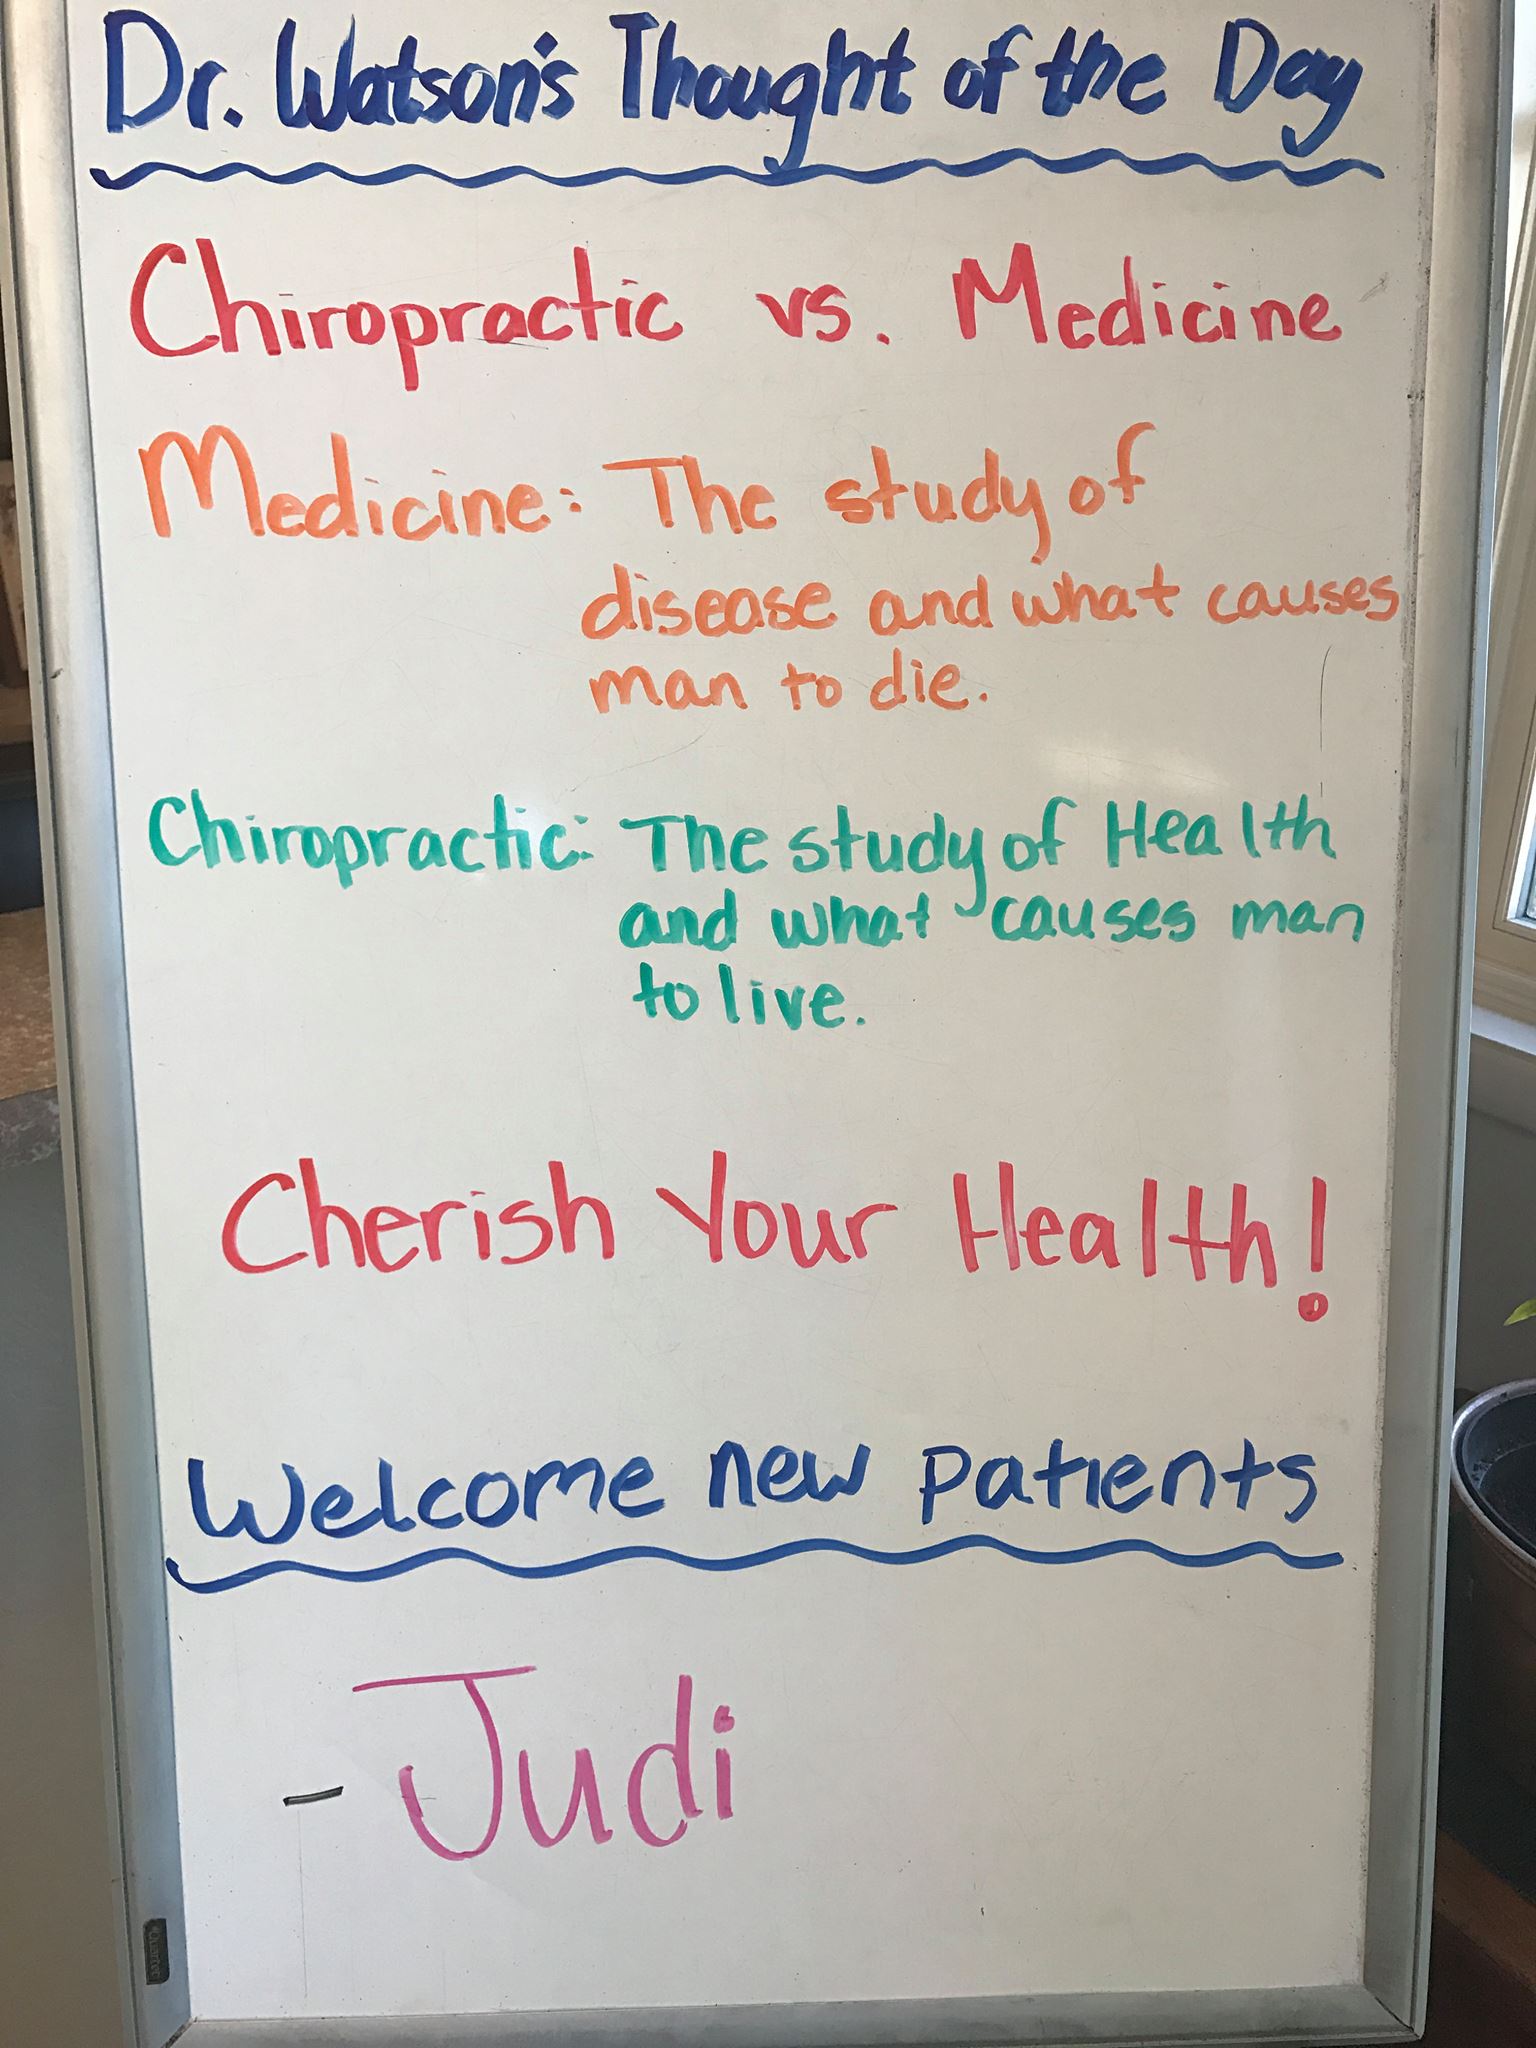 Dr. Watson's Thought of the Day
Chiropractic vs. Medicine
Medicine: The study of
disease and what causes
man to die.
Chiropractic: The study of Health
and what causes man
to live.
Cherish Your Health!
Welcome new patients
- Judi
Quartet